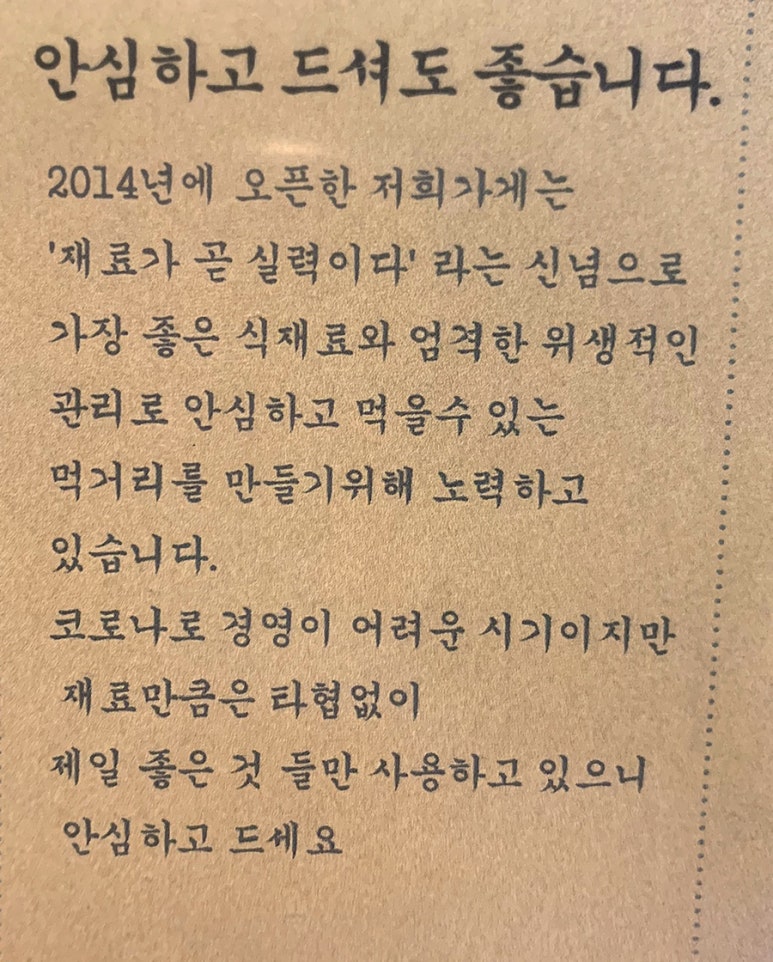 안심하고 드셔도 좋습니다.
2014년에 오픈한 저희가게는
'재료가 곧 실력이다' 라는 신념으로
가장 좋은 식재료와 엄격한 위생적인
관리로 안심하고 먹을수 있는
먹거리를 만들기위해 노력하고
있습니다.
코로나로 경영이 어려운 시기이지만
재료만큼은 타협없이
제일 좋은 것 들만 사용하고 있으니
안심하고 드세요